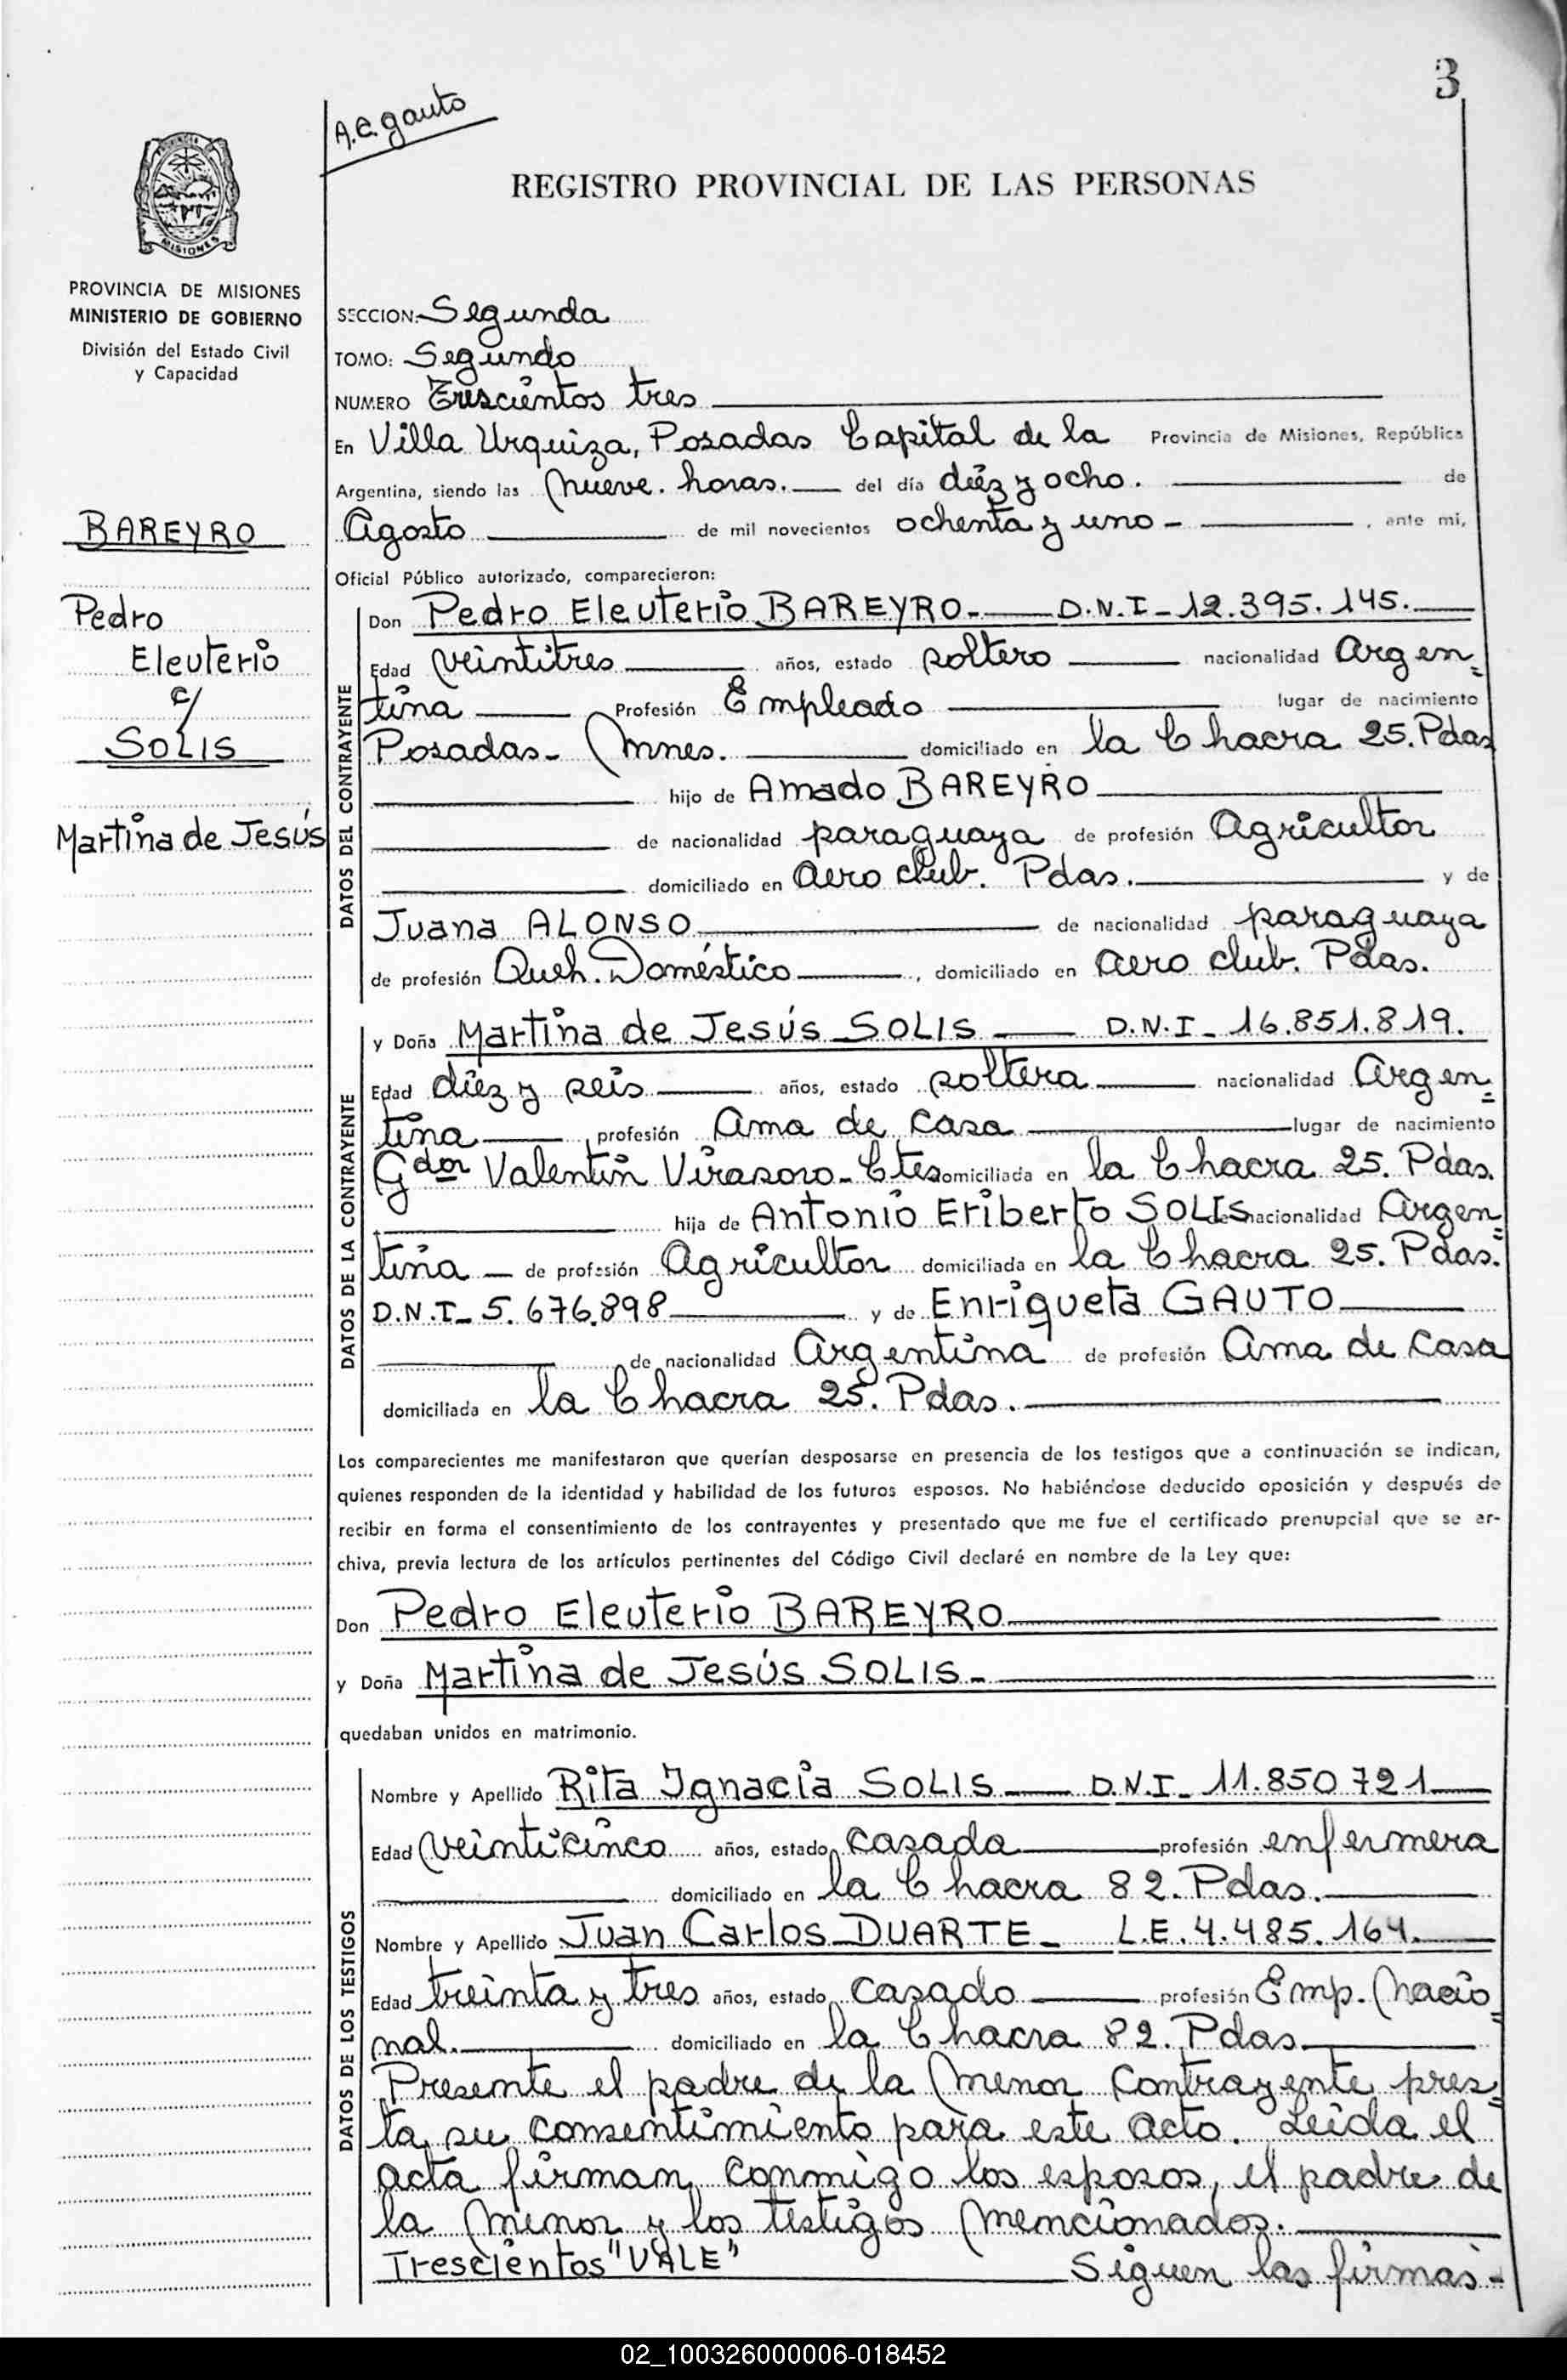 3
A.E. gauto
REGISTRO PROVINCIAL DE LAS PERSONAS
MISIONES
PROVINCIA DE MISIONES
MINISTERIO DE GOBIERNO
División del Estado Civil
y Capacidad
BAREYRO
Pedro
Eleuterio
c/
SOLIS
Martina de Jesús
SECCION: Segunda
TOMO: Segundo
NUMERO Trescientos tres
En Villa Urquiza, Posadas Capital de la Provincia de Misiones, República
Argentina, siendo las nueve. horas. del día diéz y ocho. de
Agosto de mil novecientos ochenta y uno - , ante mi,
Oficial Público autorizado, comparecieron:
DATOS DEL CONTRAYENTE
Don Pedro Eleuterio BAREYRO. D.N.I - 12.395.145.
Edad veintitres años, estado soltero nacionalidad Argen=
tina Profesión Empleado lugar de nacimiento
Posadas - Mnes. domiciliado en la Chacra 25. Pdas
hijo de Amado BAREYRO
de nacionalidad paraguaya de profesión Agricultor
domiciliado en Aero club. Pdas. y de
Juana ALONSO de nacionalidad paraguaya
de profesión Queh. Doméstico , domiciliado en Aero club. Pdas.
DATOS DE LA CONTRAYENTE
y Doña Martina de Jesús SOLIS D.N.I - 16.851.819.
Edad diez y seis años, estado soltera nacionalidad Argen=
tina , profesión Ama de casa lugar de nacimiento
Gdor Valentín Virasoro - Ctes domiciliada en la Chacra 25. Pdas.
hija de Antonio Eriberto SOLIS de nacionalidad Argen=
tina - de profesión Agricultor domiciliada en la Chacra 25. Pdas.
D.N.I - 5.676.898 y de Enriqueta GAUTO
de nacionalidad Argentina de profesión Ama de casa
domiciliada en la Chacra 25. Pdas.
Los comparecientes me manifestaron que querían desposarse en presencia de los testigos que a continuación se indican,
quienes responden de la identidad y habilidad de los futuros esposos. No habiéndose deducido oposición y después de
recibir en forma el consentimiento de los contrayentes y presentado que me fue el certificado prenupcial que se ar-
chiva, previa lectura de los artículos pertinentes del Código Civil declaré en nombre de la Ley que:
Don Pedro Eleuterio BAREYRO
y Doña Martina de Jesús SOLIS -
quedaban unidos en matrimonio.
DATOS DE LOS TESTIGOS
Nombre y Apellido Rita Ignacia SOLIS D.N.I - 11.850721
Edad veinticinco años, estado casada profesión enfermera
domiciliado en la Chacra 82. Pdas.
Nombre y Apellido Juan Carlos DUARTE - L.E. 4.485.164.
Edad treinta y tres años, estado casado profesión Emp. Nacio=
nal. domiciliado en la Chacra 82. Pdas
Presente el padre de la menor contrayente pres=
ta su consentimiento para este acto. Leida el
acta firman conmigo los esposos, el padre de
la menor y los testigos mencionados.
Trescientos "VALE" Siguen las firmas -
02_100326000006-018452